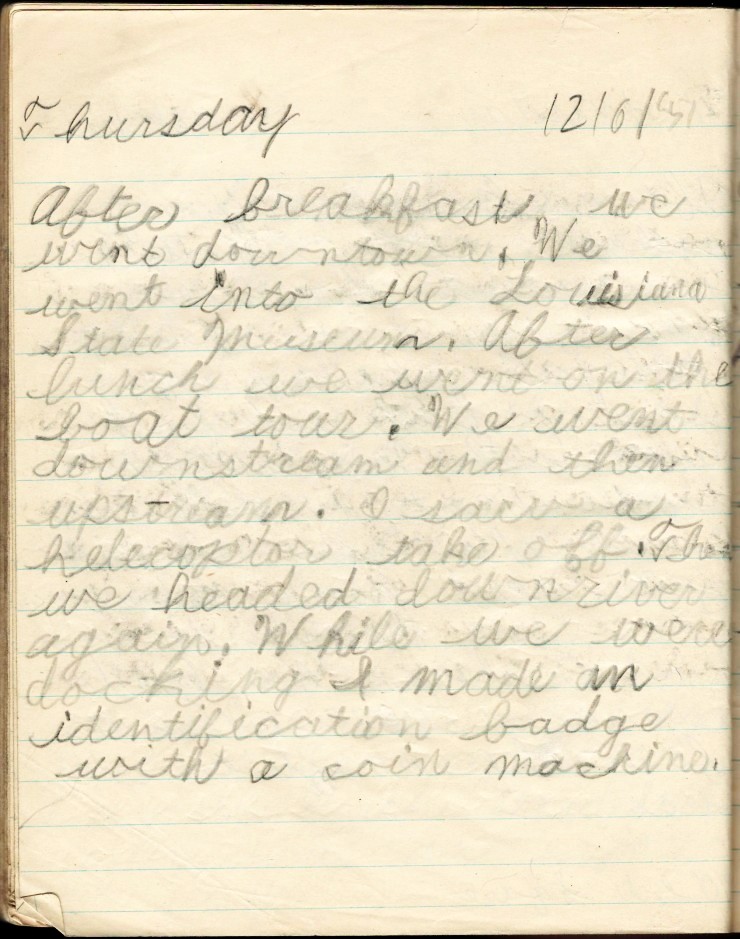 Thursday 12/6/51
After breakfast we
went downtown. We
went into the Louisiana
State Museum. After
lunch we went on the
boat tour. We went
downstream and then
upstream. I saw a
helecoptor take off. Then
we headed downriver
again. While we were
docking I made an
identification badge
with a coin machine.